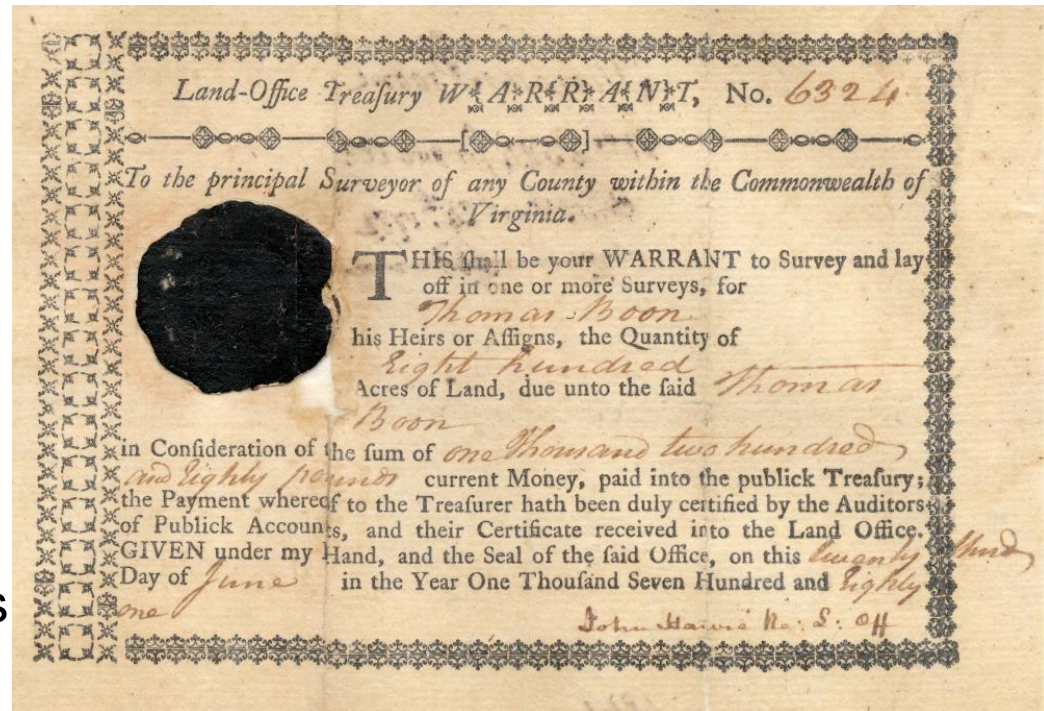 Land-Office Treaſury WARRANT, No. 6324
To the principal Surveyor of any County within the Commonwealth of
Virginia.
THIS ſhall be your WARRANT to Survey and lay
off in one or more Surveys, for
Thomas Boon
his Heirs or Aſſigns, the Quantity of
Eight hundred
Acres of Land, due unto the ſaid Thomas
Boon
in Conſideration of the ſum of one Thousand two hundred
and Eighty pounds current Money, paid into the publick Treaſury;
the Payment whereof to the Treaſurer hath been duly certified by the Auditors
of Publick Accounts, and their Certificate received into the Land Office.
GIVEN under my Hand, and the Seal of the ſaid Office, on this twenty third
Day of June in the Year One Thouſand Seven Hundred and Eighty
one
John Harvie Re: L: Off
s